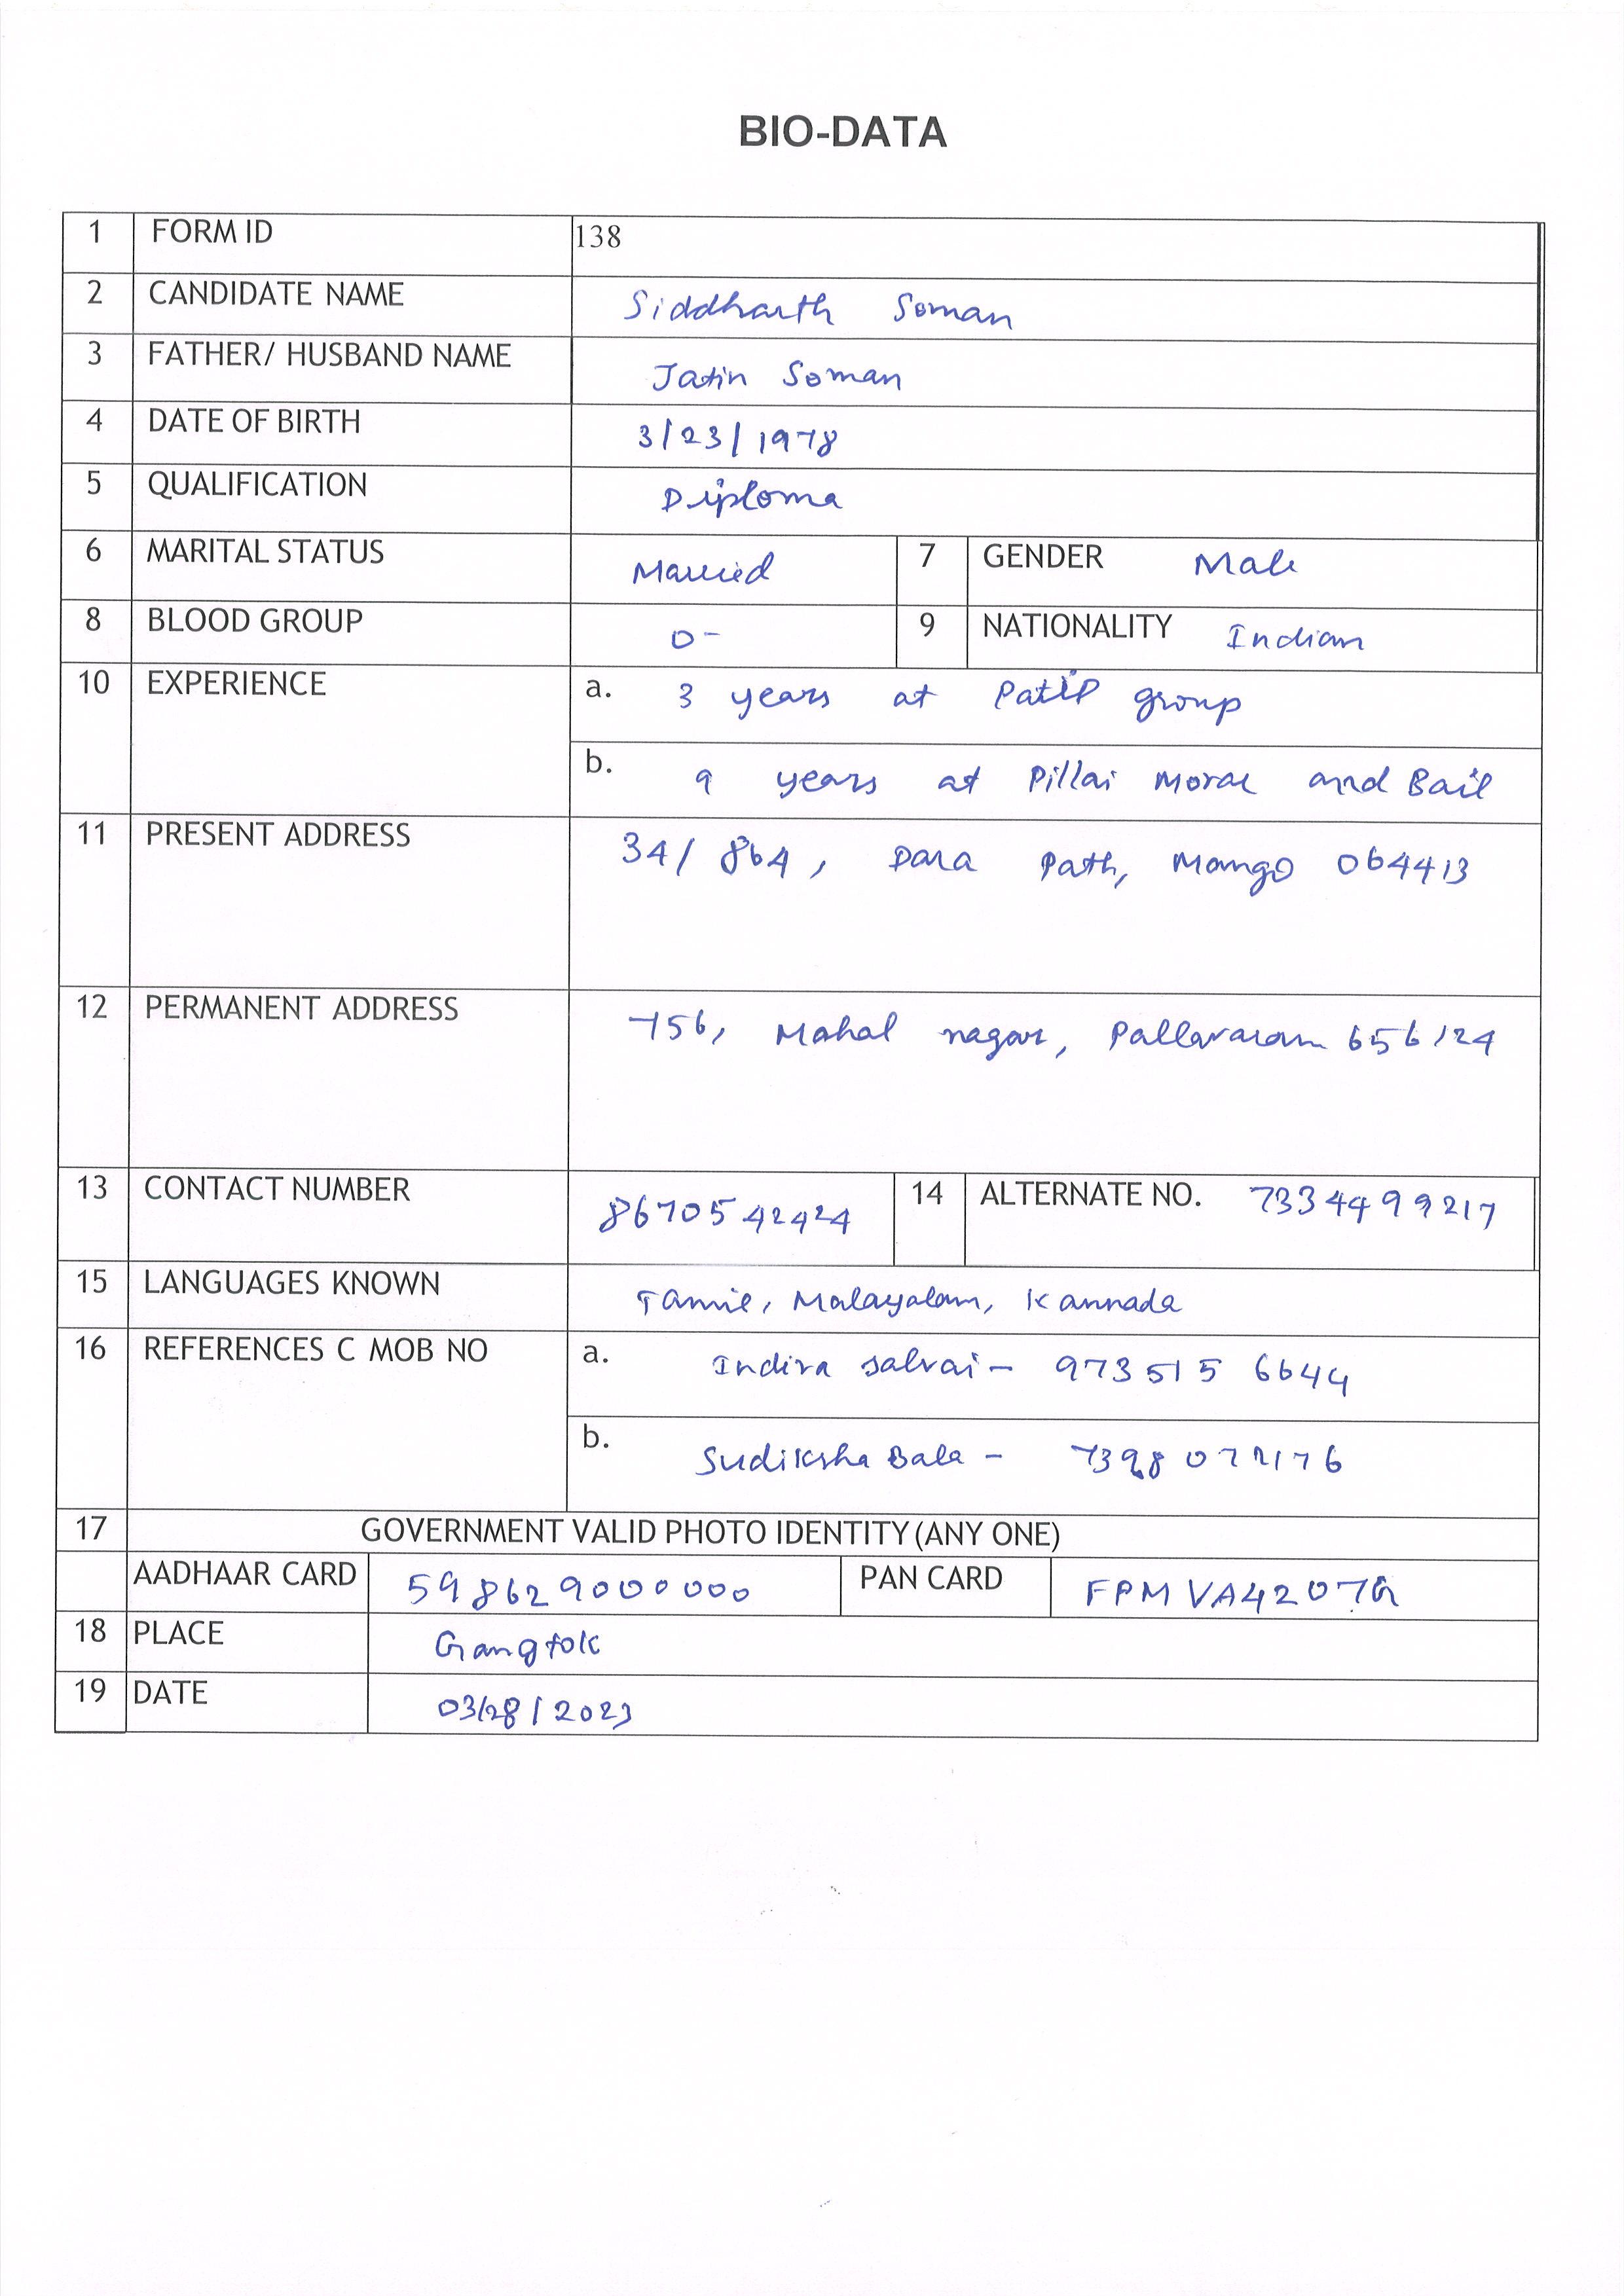 BIO-DATA
1 FORM ID 138
2 CANDIDATE NAME Siddharth Soman
3 FATHER/ HUSBAND NAME Jatin Soman
4 DATE OF BIRTH 3/23/1978
5 QUALIFICATION Diploma
6 MARITAL STATUS Married 7 GENDER Male
8 BLOOD GROUP O- 9 NATIONALITY Indian
10 EXPERIENCE a. 3 years at Patil group
b. 9 years at Pillai Moral and Bail
11 PRESENT ADDRESS 34/864, Dara Path, Mango 064413
12 PERMANENT ADDRESS 756, Mahal nagar, Pallavaram 656124
13 CONTACT NUMBER 8670542424 14 ALTERNATE NO. 7334499217
15 LANGUAGES KNOWN Tamil, Malayalam, Kannada
16 REFERENCES C MOB NO a. Indira salvai - 9735156644
b. Sudiksha Bala - 7398072176
17 GOVERNMENT VALID PHOTO IDENTITY (ANY ONE)
AADHAAR CARD 598629000000 PAN CARD FPMVA4207G
18 PLACE Gangtok
19 DATE 03/28/2023